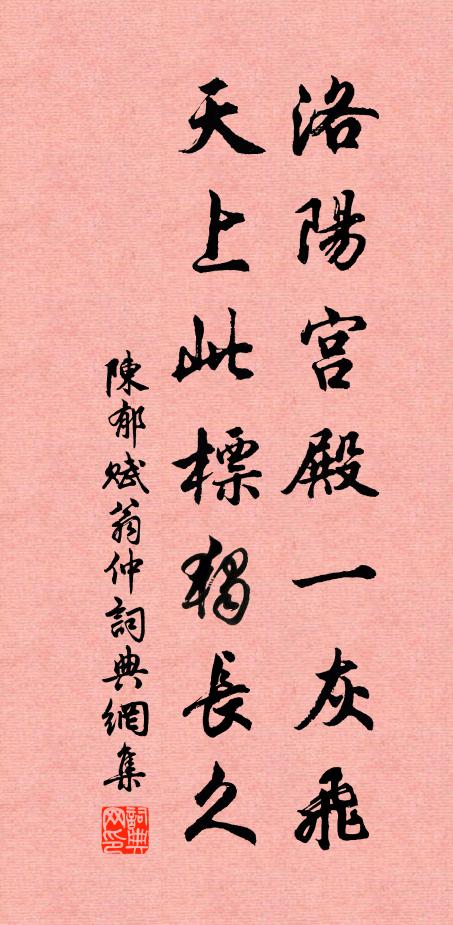 洛陽宮殿一灰飛
天上此標獨長久
陳郁賦翁仲詞典網集
詞典网印